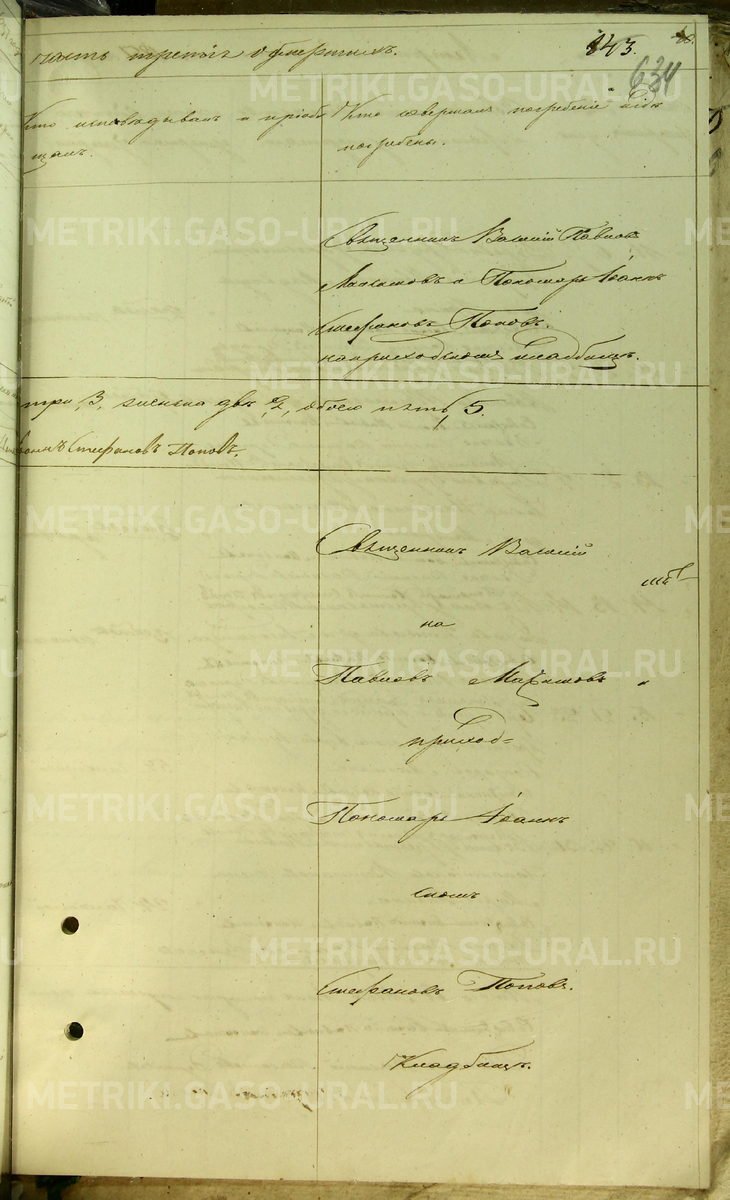 часть третья о умерших.
143.
634
Кто исповѣдывалъ и пріоб-
щалъ.
Кто совершалъ погребеніе и гдѣ
погребены.
Священникъ Василій Павловъ
Максимовъ и Пономарь Іоаннъ
Стефановъ Поповъ.
на приходскомъ кладбищѣ.
три, 3, женска двѣ 2, обоего пять, 5.
Стефановъ Поповъ.
Священникъ Василій
на
Павловъ Максимовъ и
приход=
Пономарь Іоаннъ
скомъ
Стефановъ Поповъ.
Кладбищѣ.
METRIKI.GASO-URAL.RU